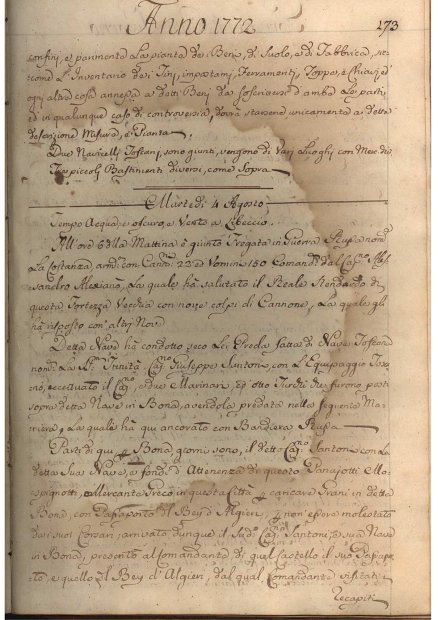 Anno 1772
173
confini, e parimente la pianta dei Beni, di Suolo, e di Fabbrica, sic
come l'Inventario dei Tini, impostami, Ferramenti, Toppe, e Chiavi ed
ogni altra cosa annessa a detti Beni da soscriversi d'ambe le parti,
ed in qualunque caso di controversia, dovrà starsene unicamente a detta
descrizione Misura, e Pianta
Due Navicelli Toscani, sono giunti, vengono di Vari Luoghi con Merc. di
piccoli Bastimenti diversi, come Sopra
Martedì 4 Agosto
Tempo Acqua, e oscuro, e Vento a Libeccio
All'ore 6 della Mattina è giunto Fregata in Guerra Russa nom.
La Costanza, arm. con Cann. 22 ed Uomini 150 Comand. dal Cap.no Ales
sandro Alexiano, La quale ha salutato il Reale Stendardo di
questa Fortezza Vecchia con nove colpi di Cannone, La quale gli
ha risposto con altri Nove
Detta Nave ha condotto seco La Preda fatta di Nave Toscana
nom. La SS. Trinità Cap.no Giuseppe Santoni con L'Equipaggio Tosca
no, eccettuato il Cap.no, e due Marinari, ed otto Turchi che furono posti
sopra detta Nave in Bona, avendola predata nella seguente Ma
niera, La quale ha qui ancorato con Bandiera Russa
Partì di qui p Bona giorni sono, il detto Cap.no Santoni con La
detta Sua Nave, e fondi d'Attenenza di questo Panajotti Mo
spignotti, Mercante Greco in questa Città p caricare Grani in detta
Bona, con Passaporto il Bey d'Algieri, p non essere molestato
dai suoi Corsari, arrivato dunque il Sud.o Cap.no Santoni, e sua Nave
in Bona, presentò al Comandante di quel Castello il suo Passapor
to, e quello il Bey d'Algieri, dal qual Comandante visitati
Recapiti